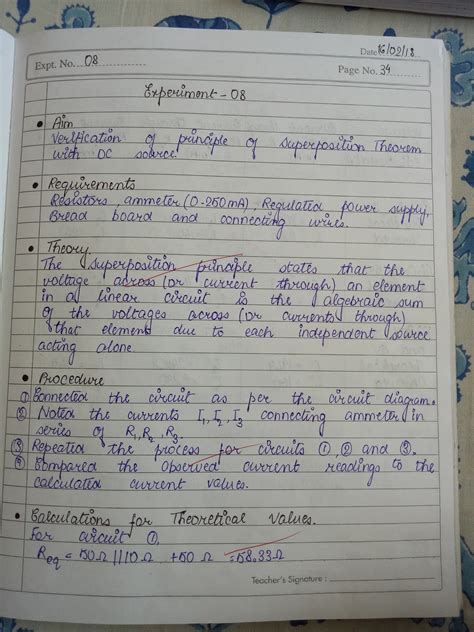 Date 16/02/18
Expt. No. 08
Page No. 34
Experiment - 08
• Aim
Verification of principle of superposition Theorem
with DC source.
• Requirements
Resistors, ammeter (0-250mA), Regulated power supply,
Bread board and connecting wires.
• Theory
The superposition principle states that the
voltage across (or current through) an element
in a linear circuit is the algebraic sum
of the voltages across (or currents through)
that element due to each independent source
acting alone.
• Procedure
① Connected the circuit as per the circuit diagram.
② Noted the currents I₁, I₂, I₃ connecting ammeter in
series of R₁, R₂, R₃.
③ Repeated the process for circuits ①, ② and ③.
④ Compared the observed current readings to the
calculated current values.
• Calculations for Theoretical values.
For circuit ①,
Req = 50Ω || 10Ω + 50Ω = 58.33Ω
Teacher's Signature :